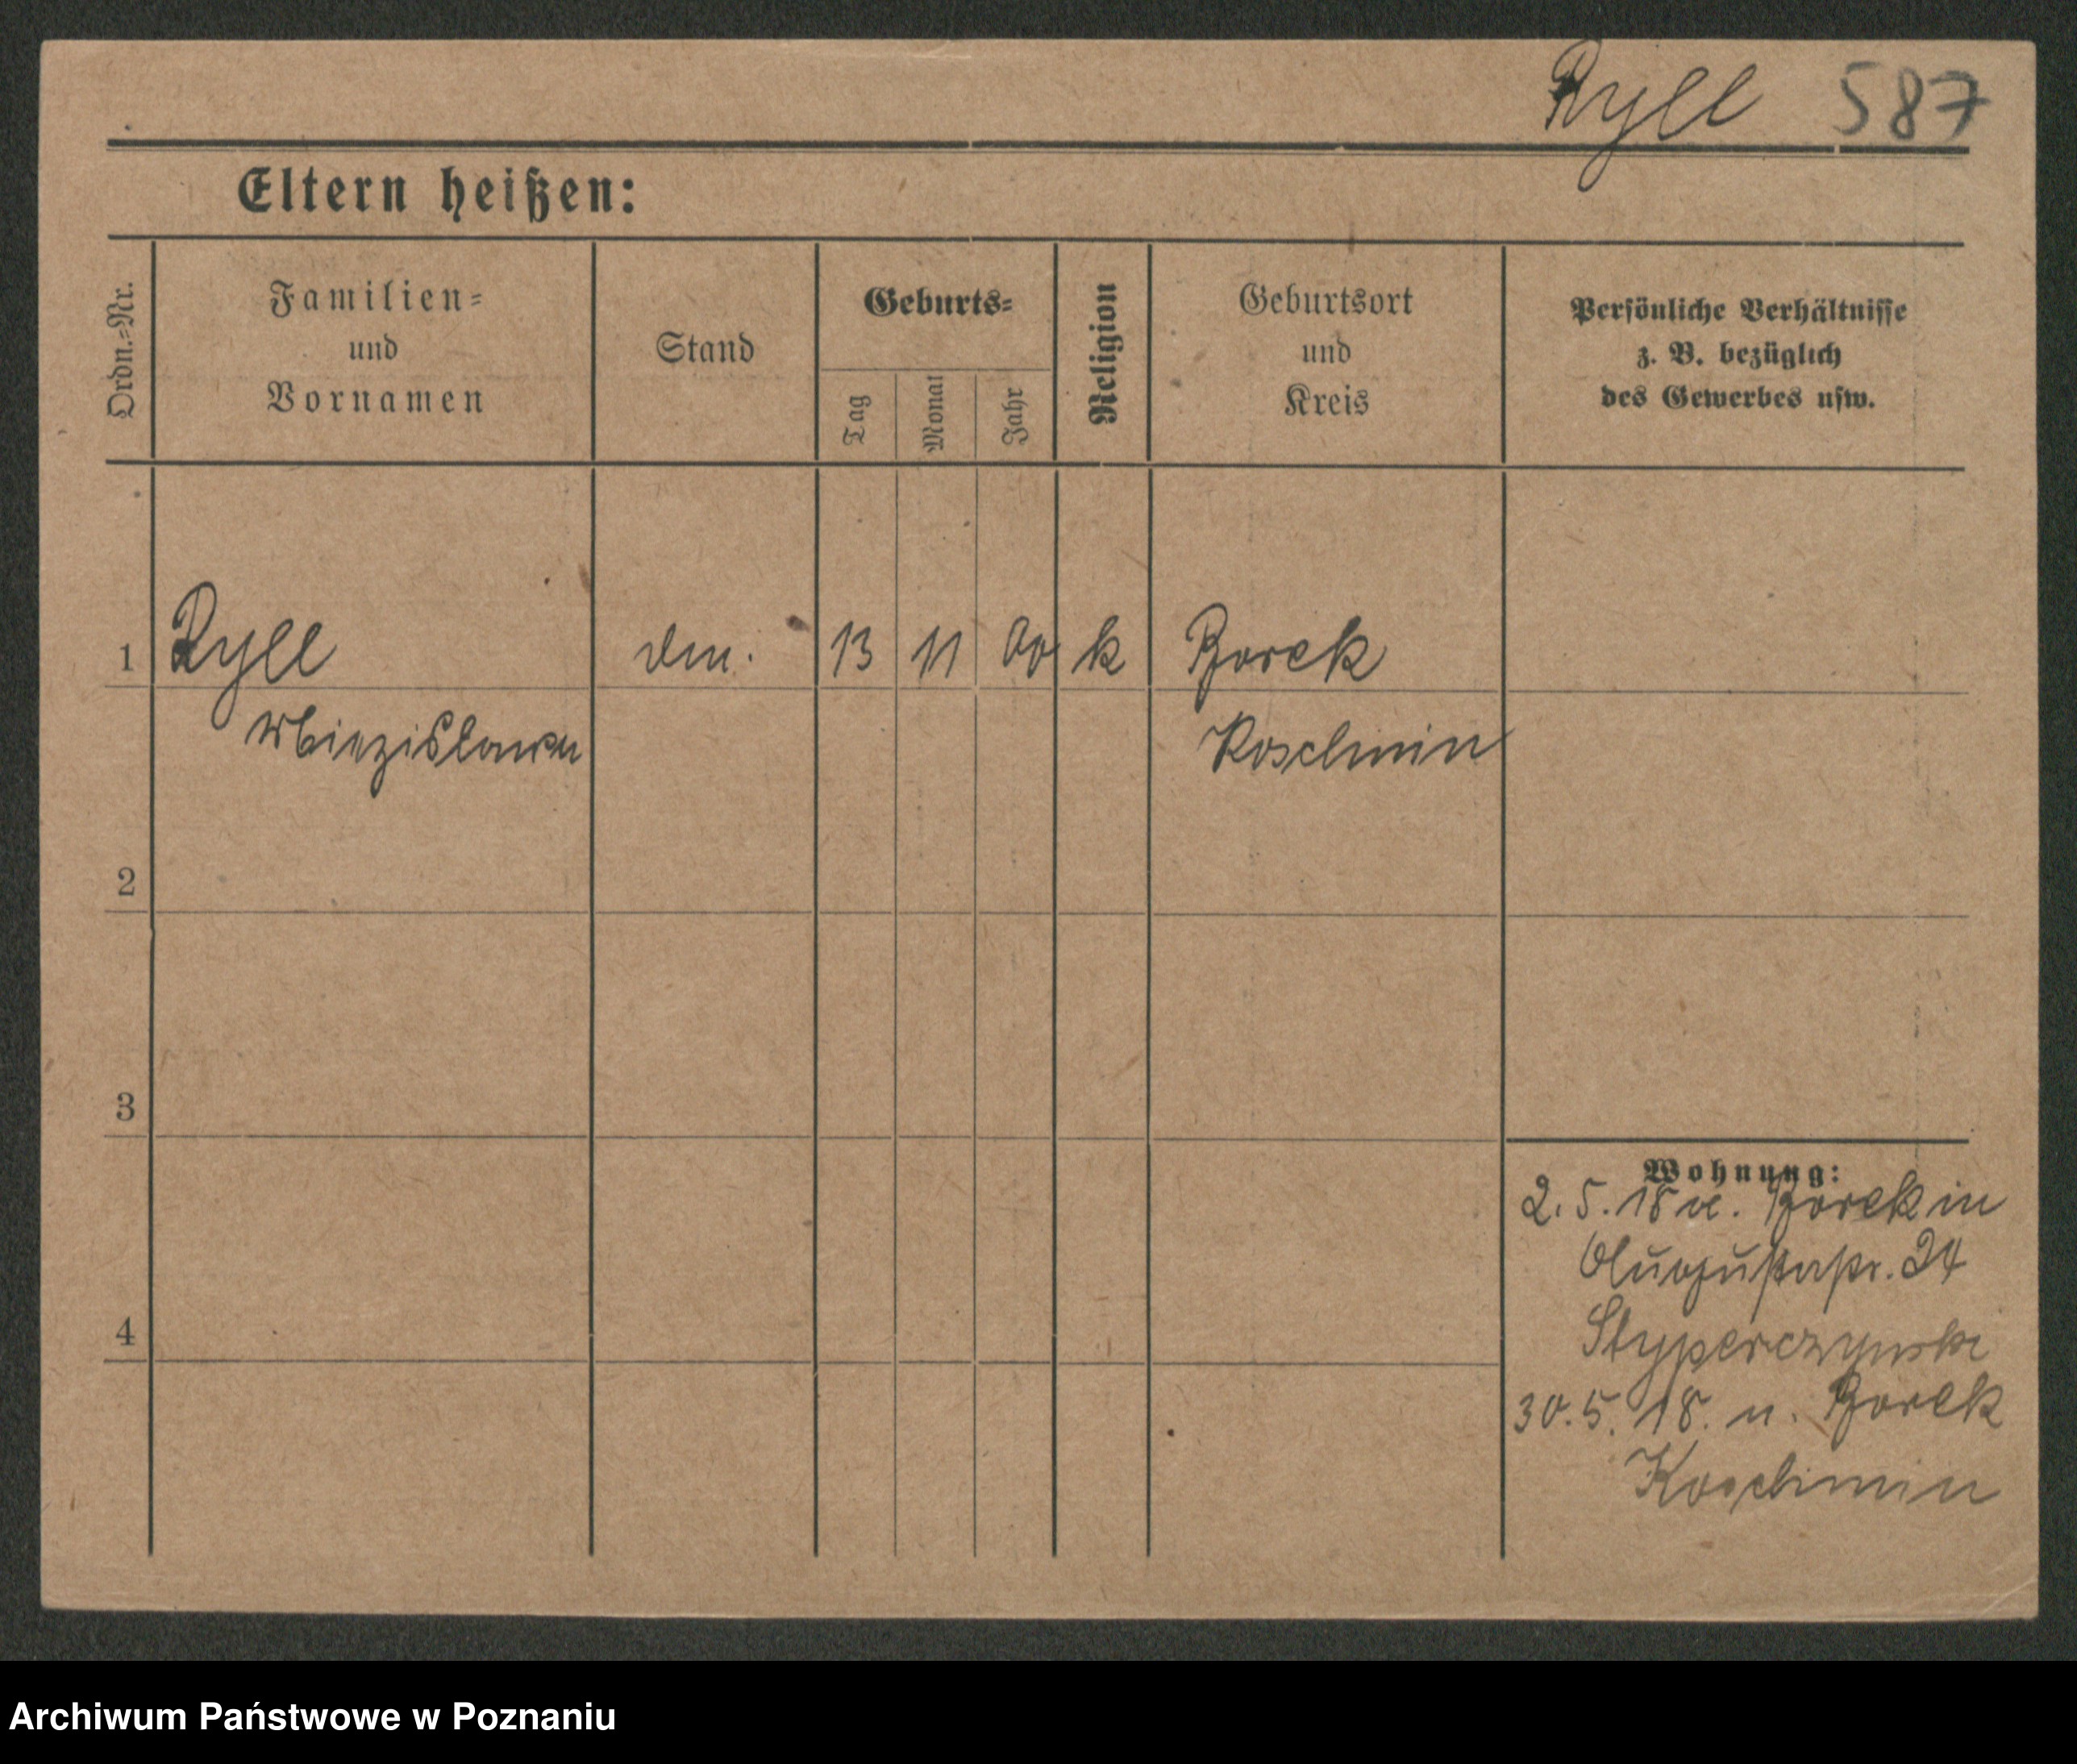 Ryll 587
Eltern heißen:
Ordn.-Nr.
Familien-
und
Vornamen
Stand
Geburts-
Tag
Monat
Jahr
Religion
Geburtsort
und
Kreis
Persönliche Verhältnisse
z. B. bezüglich
des Gewerbes usw.
1 Ryll 13 11 00 k Borek
Koschmin
2
3
4
Wohnung:
2. 5. 18 v. Borek in
Augustastr. 24
Styperczynski
30. 5. 18. n. Borek
Koschmin
Archiwum Państwowe w Poznaniu